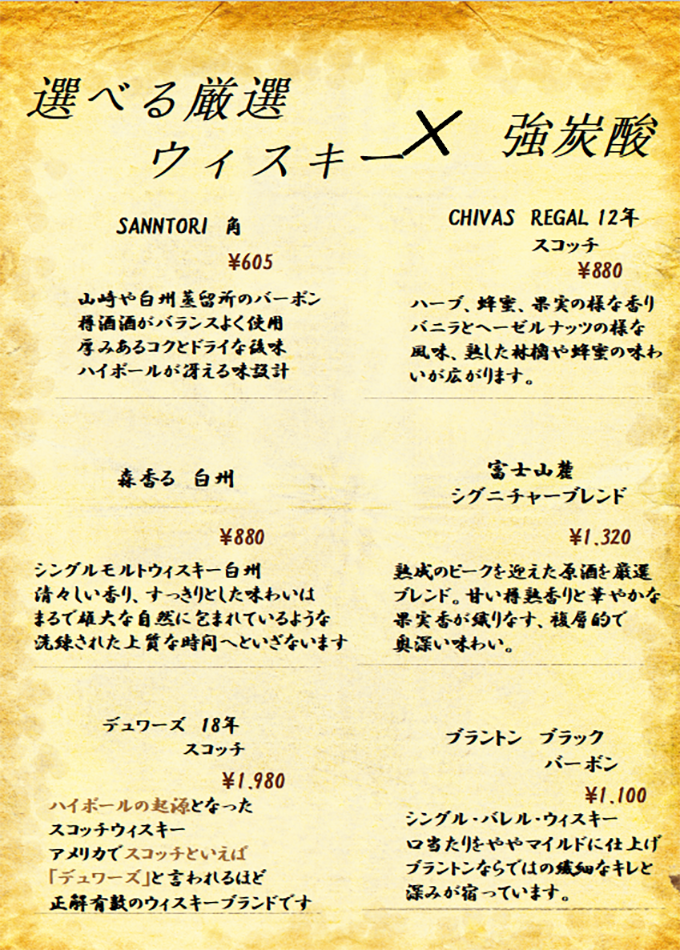 選べる厳選
ウィスキー
×
強炭酸
SANNTORI 角
¥605
山崎や白州蒸留所のバーボン
樽酒酒がバランスよく使用
厚みあるコクとドライな後味
ハイボールが冴える味設計
CHIVAS REGAL 12年
スコッチ
¥880
ハーブ、蜂蜜、果実の様な香り
バニラとヘーゼルナッツの様な
風味、熟した林檎や蜂蜜の味わ
いが広がります。
森香る 白州
¥880
シングルモルトウィスキー白州
清々しい香り、すっきりとした味わいは
まるで雄大な自然に包まれているような
洗練された上質な時間へといざないます
富士山麓
シグニチャーブレンド
¥1,320
熟成のピークを迎えた原酒を厳選
ブレンド。甘い樽熟香りと華やかな
果実香が織りなす、複層的で
奥深い味わい。
デュワーズ 18年
スコッチ
¥1,980
ハイボールの起源となった
スコッチウィスキー
アメリカでスコッチといえば
「デュワーズ」と言われるほど
正解有数のウィスキーブランドです
ブラントン ブラック
バーボン
¥1,100
シングル・バレル・ウィスキー
口当たりをややマイルドに仕上げ
ブラントンならではの繊細なキレと
深みが宿っています。